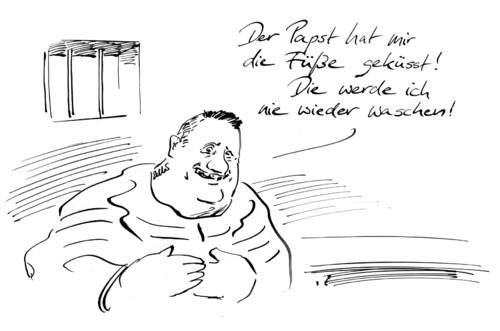 Der Papst hat mir
die Füße geküsst!
Die werde ich
nie wieder waschen!